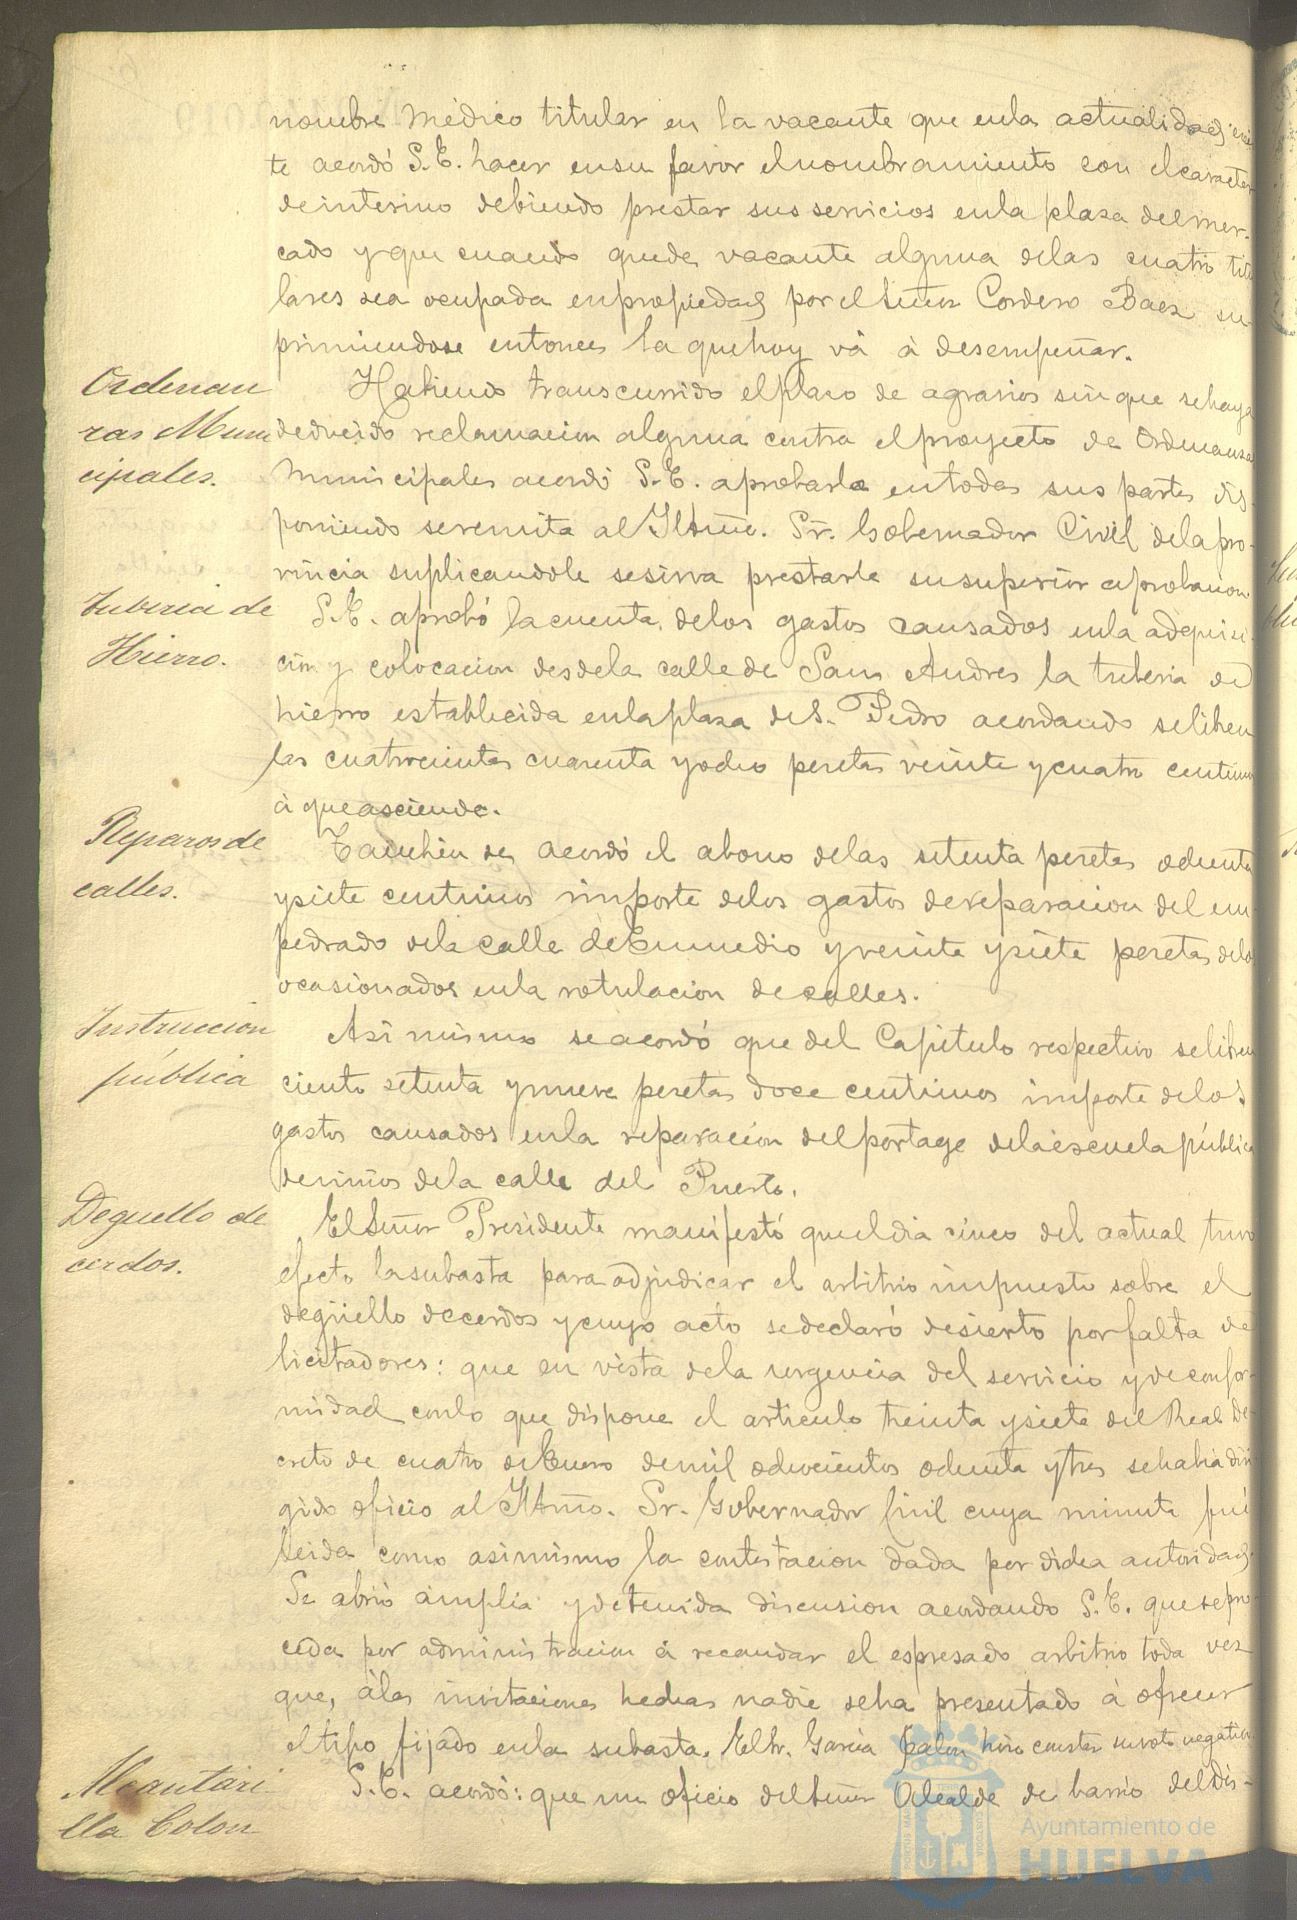 nombre Médico titular en la vacante que enla actualidad
te acordó S.E. hacer ensu favor elnombramiento con elcaracter
deinterino debiendo prestar sus servicios enla plaza delmer-
cado y que cuando quede vacante alguna delas cuatro titu
lares sea ocupada enpropiedad por el Señor Cordero Baez su
primiendose entonces la quehoy vá á desempeñar.
Ordenan
zas Muni
cipales.
Habiendo transcurrido elplazo de agravios sin que sehaya
deducido reclamacion alguna contra elproyecto de Ordenanzas
Municipales acordó S.E. aprobarla entodas sus partes dis-
poniendo seremita al Iltmo. Sr. Gobernador Civil delapro-
vincia suplicandole sesirva prestarle susuperior aprobacion
Tuberia de
Hierro.
S.E. aprobó lacuenta delos gastos causados enla adquisi
cion y colocacion desdela calle de San Andres la tuberia de
hierro establecida enlaplaza de S. Pedro acordando seliben
las cuatrocientas cuarenta yocho pesetas veinte ycuatro centimos
á queasciende.
Reparos de
calles.
Tambien se acordó el abono delas setenta pesetas ochenta
ysiete centimos importe delos gastos dereparacion del em
pedrado dela calle deEnmedio y veinte ysiete pesetas delos
ocasionados enla rotulacion decalles.
Instruccion
pública
Asi mismo seacordó que del Capitulo respectivo seliben
ciento setenta ynueve pesetas doce centimos importe delos
gastos causados enla reparacion delportage delaescuela pública
deniños dela calle del Puerto.
Deguello de
cerdos.
El Señor Presidente manifestó queeldia cinco del actual tuvo
efecto lasubasta para adjudicar el arbitrio impuesto sobre el
degüello decerdos ycuyo acto sedeclaró desierto porfalta de
licitadores: que en vista dela urgencia del servicio ydeconfor-
midad conlo que dispone el articulo treinta ysiete del Real De-
creto de cuatro deEnero demil ochocientos ochenta ytres sehabia diri
gido oficio al Iltmo. Sr. Gobernador Civil cuya minuta fué
leida como asimismo la contestacion dada por dicha autoridad.
Se abrió ámplia ydetenida discusion acordando S.E. quesepro-
ceda por administracion á recaudar el espresado arbitrio toda vez
que, álas invitaciones hechas nadie seha presentado á ofrecer
eltipo fijado enla subasta. El Sr. Garcia hizo constar suvoto negativo
Alcantari
lla Colon
S.E. acordó: que un oficio delSeñor Alcalde de barrio deldis-
Ayuntamiento de
HUELVA